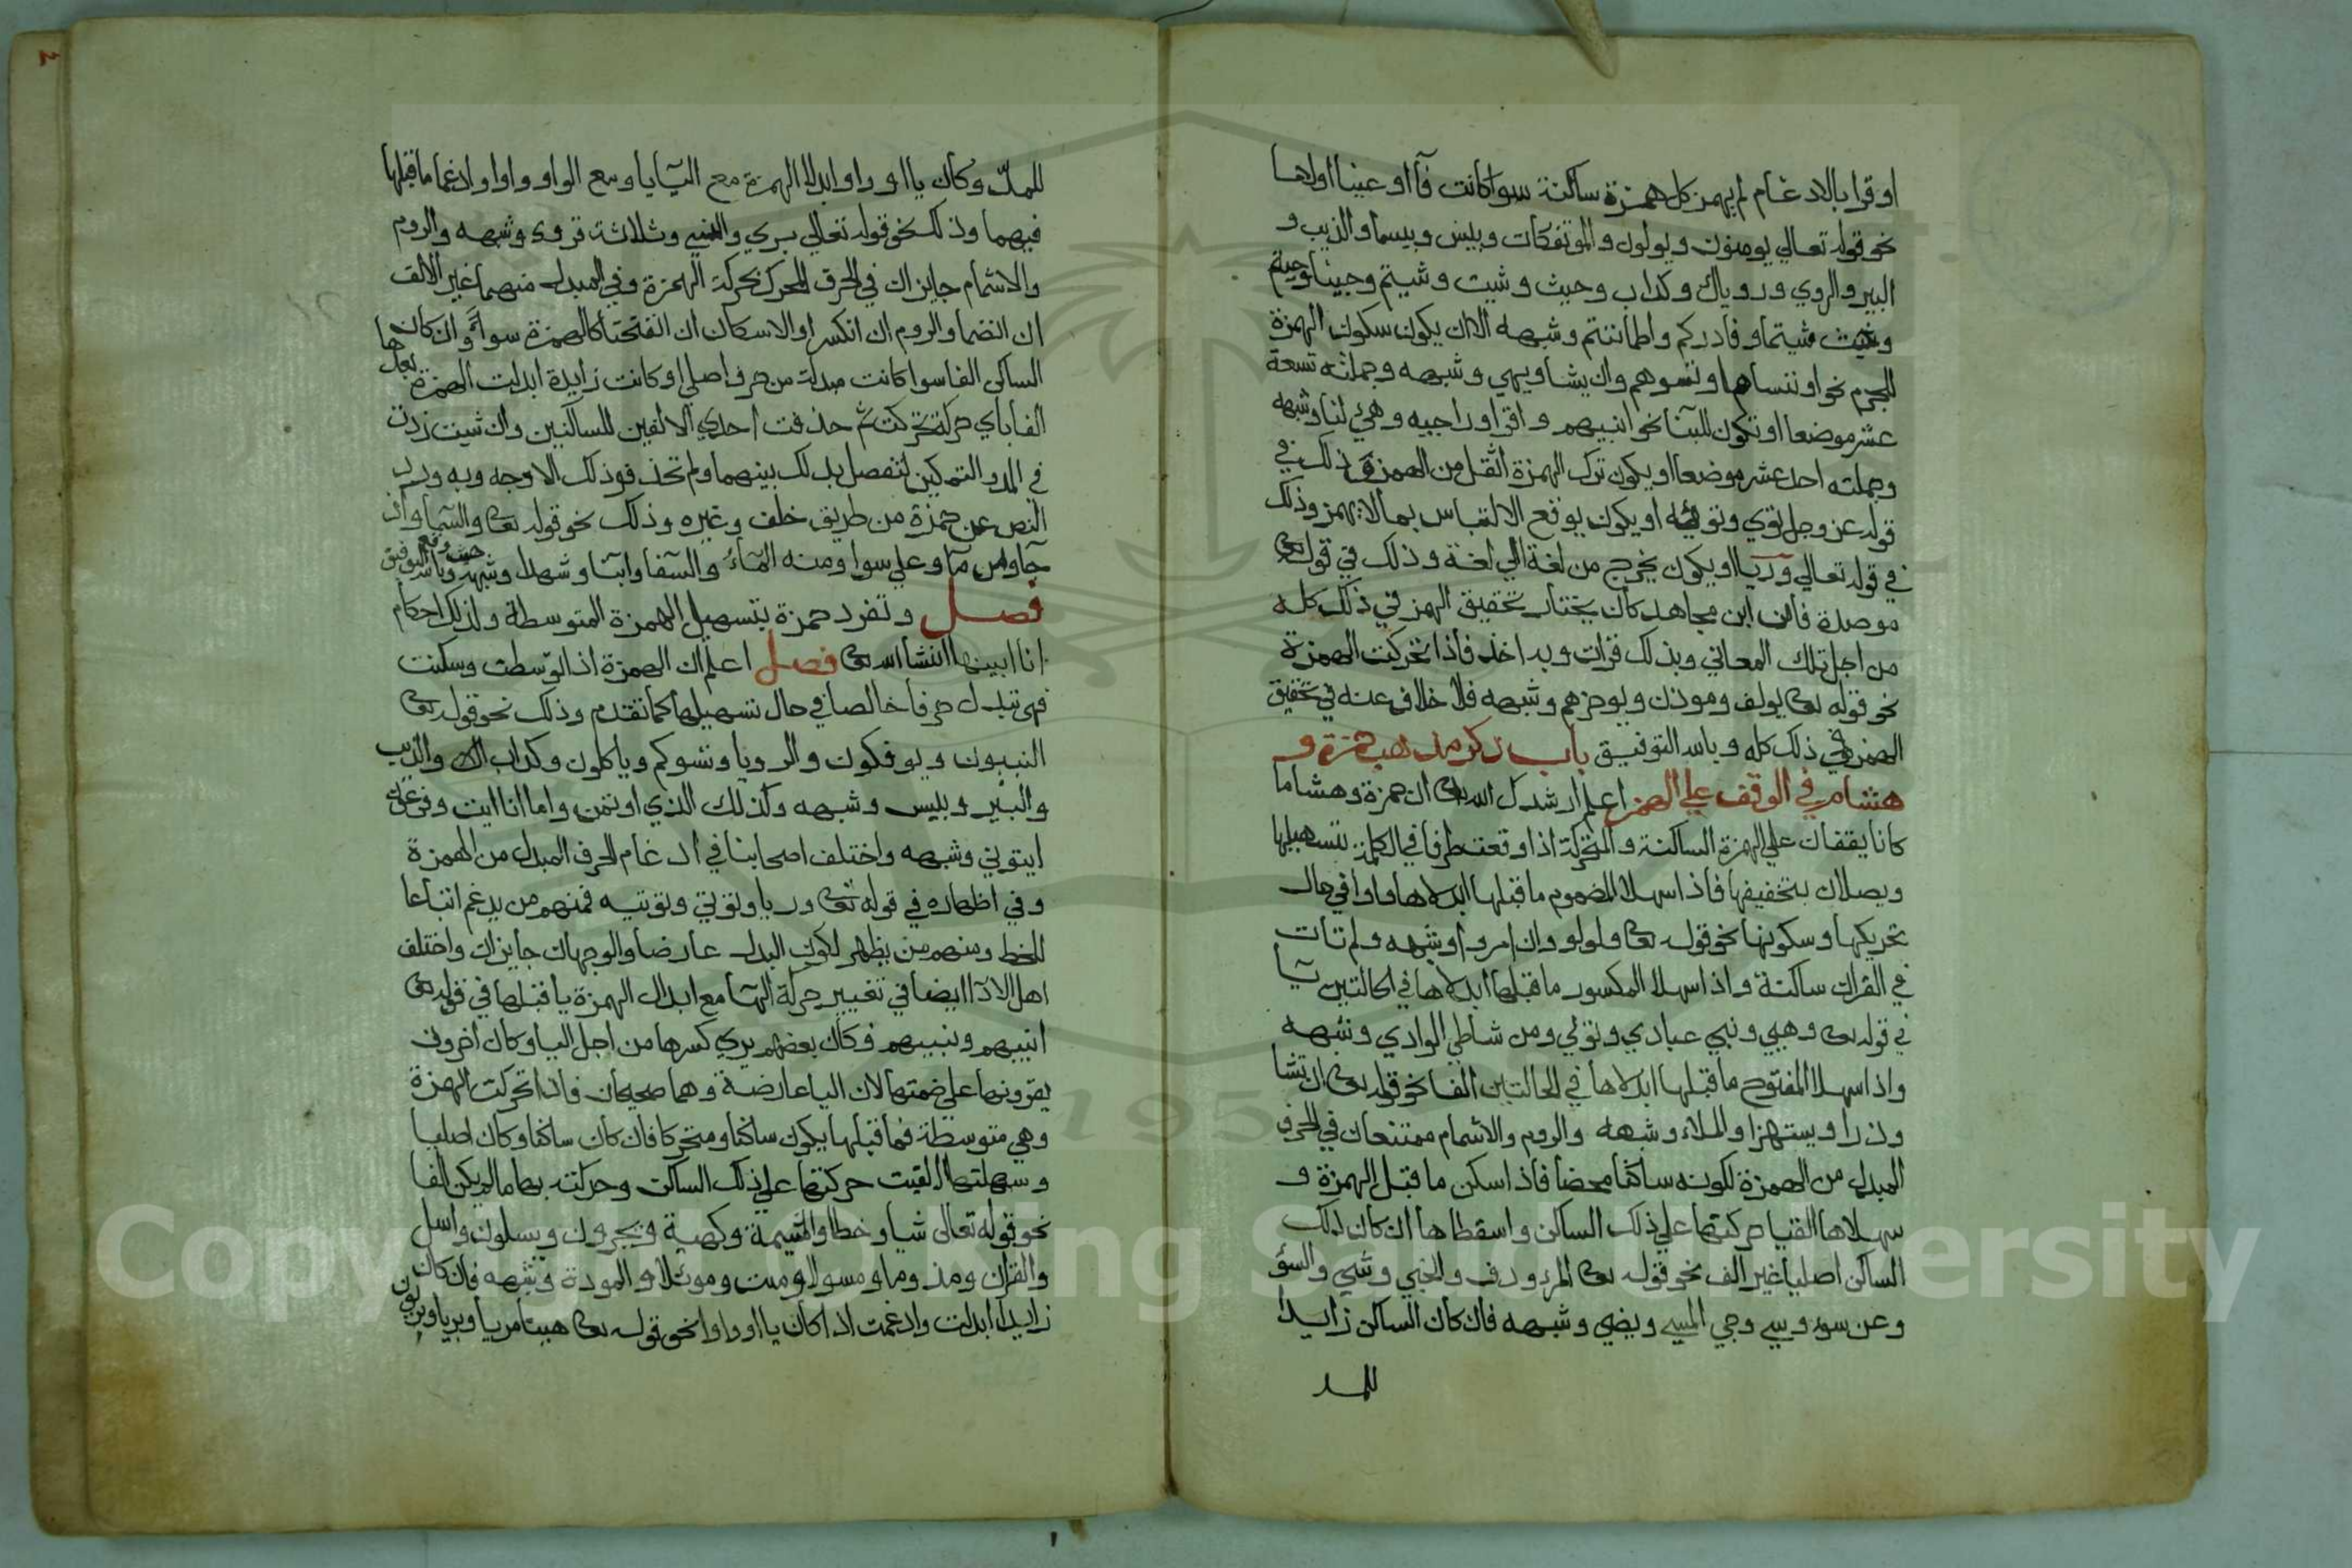 او قرا بالادغام لم يهمز كل همزة ساكنة سوا كانت فآ او عينا اولاما
نحو قوله تعالي يومنون ويولون والموتفكات وبيس وبيسما والذيب و
البير والروي وروياك وكداب وجيت وشيت وشيتم وجينا وجيتم
وشيتما وفادركم واطماننتم وشبهه الا ان يكون سكون الهمزة
للجزم نحو او ننساها وتسوهم وان يشا ويهي وشبهه وجملته تسعة
عشر موضعا او تكون للبنا نحو انبيهم واقرا وارجيه وهي لنا وشبهه
وجملته احد عشر موضعا او يكون ترك الهمزة اثقل من الهمز وذلك في
قوله عز وجل تووي وتوويه او يكون يوقع الالتباس بما لا يهمز وذلك
في قوله تعالي وريا او يكون يخرج من لغة الي لغة وذلك في قوله تعالى
موصدة فان ابن مجاهد كان يختار تحقيق الهمز في ذلك كله
من اجل تلك المعاني وبذلك قرات وبه اخذ فاذا تحركت الهمزة
نحو قوله تعالى يولف وموذن ويوخرهم وشبهه فلا خلاف عنه في تحقيق
الهمز في ذلك كله وبالله التوفيق باب ذكر مذهب حمزة و
هشام في الوقف علي الهمز اعلم ارشدك الله تعالى ان حمزة وهشاما
كانا يقفان علي الهمزة الساكنة والمتحركة اذا وقعت طرفا في الكلمة بتسهيلها
ويصلان بتحقيقها فاذا سهلا المضموم ما قبلها ابدلاها واوا في حال
تحريكها وسكونها نحو قوله تعالى ولولو وان امرو وشبهه ولم تات
في القران ساكنة واذا سهلا المكسور ما قبلها ابدلاها في الحالتين يآ
في قوله تعالى وهيي ونبي عبادي وتوي ومن شاطي الوادي وشبهه
واذا سهلا المفتوح ما قبلها ابدلاها في الحالتين الفا نحو قوله تعالى ان نشا
وذرا ويستهزا والملاء وشبهه والروم والاشمام ممتنعان في الحرف
المبدل من الهمزة لكونه ساكنا محضا فاذا سكن ما قبل الهمزة و
سهلاها القيا حركتها علي ذلك الساكن واسقطاها ان كان ذلك
الساكن اصليا غير الف نحو قوله تعالى المرء ودف والخبي وشي والسؤ
وعن سوء وسي وجي المسي ويضي وشبهه فان كان الساكن زايدا
للمد
للمدّ وكان يا او واوا ابدلا الهمزة مع اليآ يا ومع الواو واوا وادغما ما قبلها
فيهما وذلك نحو قوله تعالي بري والنسي وثلاثة قروء وشبهه والروم
والاشمام جايزان في الحرف المحرك بحركة الهمزة وفي المبدل منهما غير الالف
ان انضما والروم ان انكسرا والاسكان ان انفتحتا كالهمزة سواء وان كان
الساكن الفا سوا كانت مبدلة من حرف اصلي او كانت زايدة ابدلت الهمزة بعدها
الفا باي حركة تحركت ثم حذفت احدي الالفين للساكنين وان شيت زدت
في المد والتمكين لتفصل بذلك بينهما ولم تحذف وذلك الاوجه وبه ورد
النص عن حمزة من طريق خلف وغيره وذلك نحو قوله تعالى والسمآ واذا
جآ ومن مآ وعلي سوا ومنه المآء والسفها وابنآ وشهدا وشبهه حيث وقع وبالله التوفيق
فصل وتفرد حمزة بتسهيل الهمزة المتوسطة ولذلك احكام
انا ابينها انشا الله تعالى فصل اعلم ان الهمزة اذا توسطت وسكنت
فهي تبدل حرفا خالصا في حال تسهيلها كما تقدم وذلك نحو قوله تعالى
النبيون ويوفكون والرويا وتسوكم وياكلون وكداب الـ والذيب
والبير وبيس وشبهه وكذلك الذي اوتمن واما انا ايت وفرعون
ايتوني وشبهه واختلف اصحابنا في ادغام الحرف المبدل من الهمزة
وفي اظهاره في قوله تعالى وريا وتووي وتوويه فمنهم من يدغم اتباعا
للخط ومنهم من يظهر لكون البدل عارضا والوجهان جايزان واختلف
اهل الادآ ايضا في تغيير حركة الهآ مع ابدال الهمزة يا قبلها في قوله تعالى
انبيهم ونبيهم فكان بعضهم يري كسرها من اجل اليا وكان اخرون
يقرونها علي ضمتها لان اليا عارضة وهما صحيحان فاذا تحركت الهمزة
وهي متوسطة فما قبلها يكون ساكنا ومتحركا فان كان ساكنا وكان اصليا
وسهلتها القيت حركتها علي ذلك الساكن وحركته بها ما لم يكن الفا
نحو قوله تعالى شيا وخطا والمشيمة وكهية ويجرون ويسلون واسل
والقران ومذوما ومسولا وميت وموئلا والمودة وشبهه فان كان
زايدا ابدلت وادغمت اذا كان يا او واوا نحو قوله تعالى هنيئا مريا وبريا وبريون